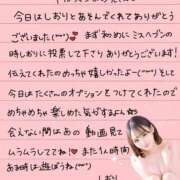 今日はしおりとあそんでくれてありがとう
ございました(^^)💕 まず初めに ミスヘブンの
時しおりに投票して下さりありがとうございます!
伝えてくれたのめっちゃ嬉しかったよー(^^)そして
今日はたくさんのオプションをつけてくれたので
めちゃめちゃ楽しめた気がするよん☆
会えない間はあの動画見て
ムラムラしててね(^^)♥ また1人時間
ある時は遊ぼうね(^^)
しおり